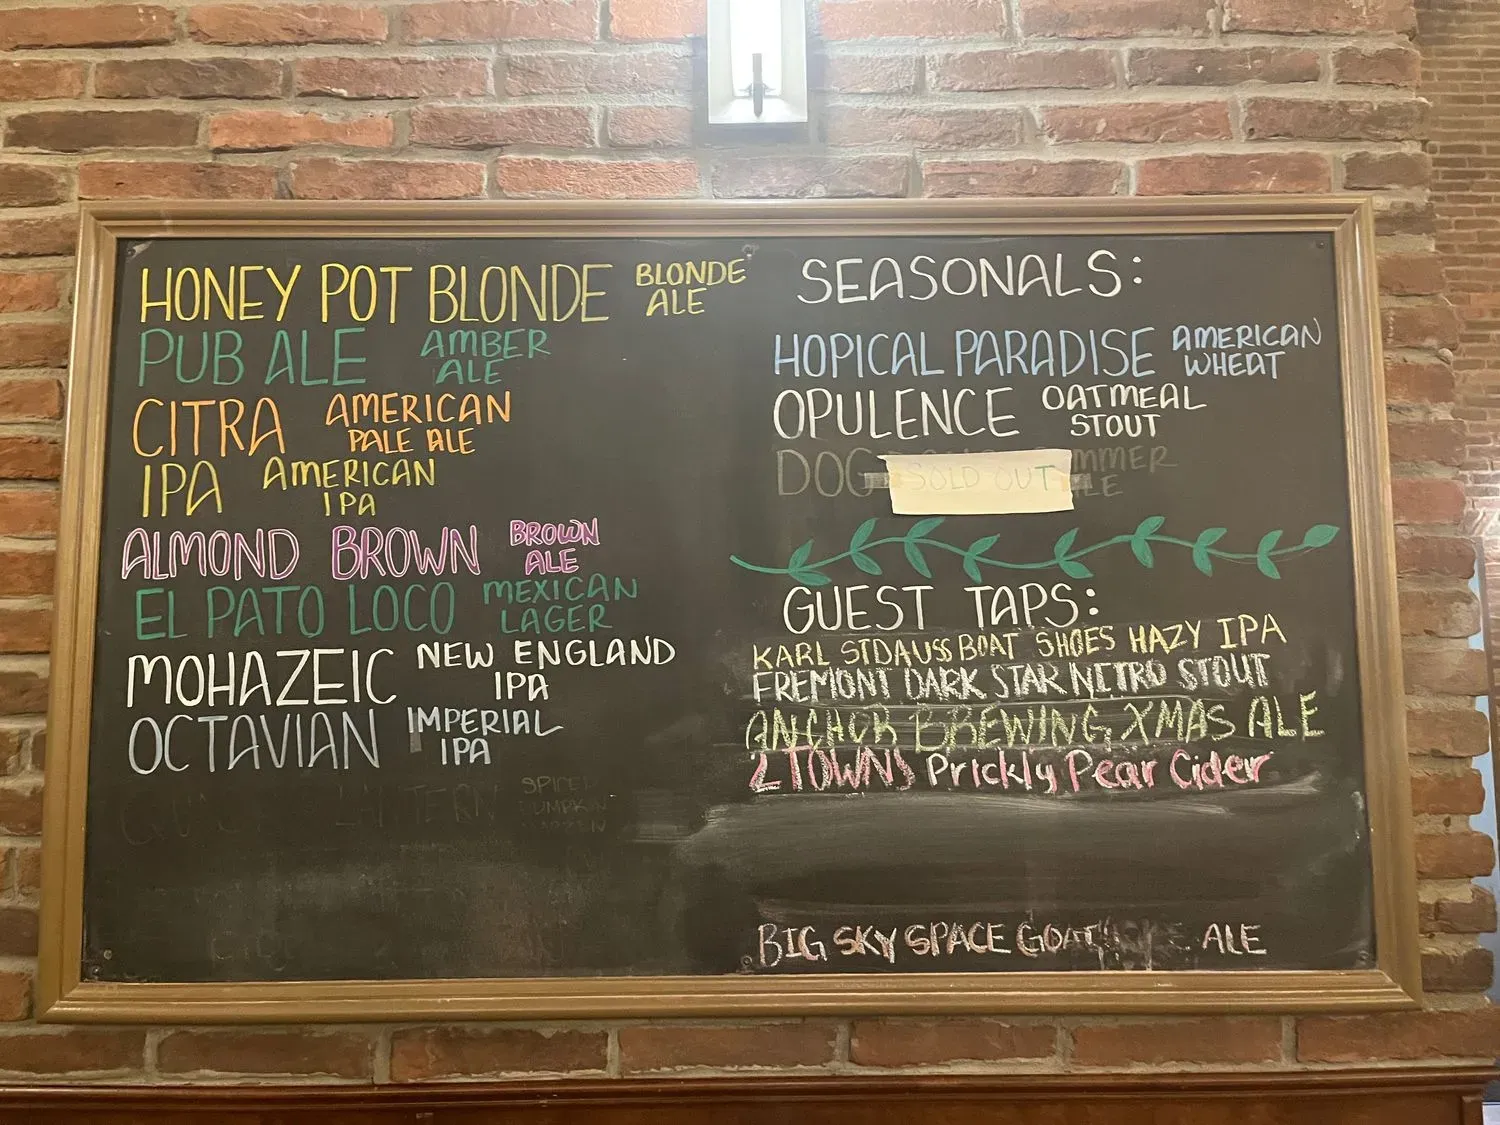 HONEY POT BLONDE BLONDE ALE
PUB ALE AMBER ALE
CITRA AMERICAN PALE ALE
IPA AMERICAN IPA
ALMOND BROWN BROWN ALE
EL PATO LOCO MEXICAN LAGER
MOHAZEIC NEW ENGLAND IPA
OCTAVIAN IMPERIAL IPA
LANTERN SPICED PUMPKIN
SEASONALS:
HOPICAL PARADISE AMERICAN WHEAT
OPULENCE OATMEAL STOUT
DOG
SOLD OUT
GUEST TAPS:
KARL STDAUSS BOAT SHOES HAZY IPA
FREMONT DARK STAR NITRO STOUT
ANCHOR BREWING XMAS ALE
2 TOWNS Prickly Pear Cider
BIG SKY SPACE GOAT ALE